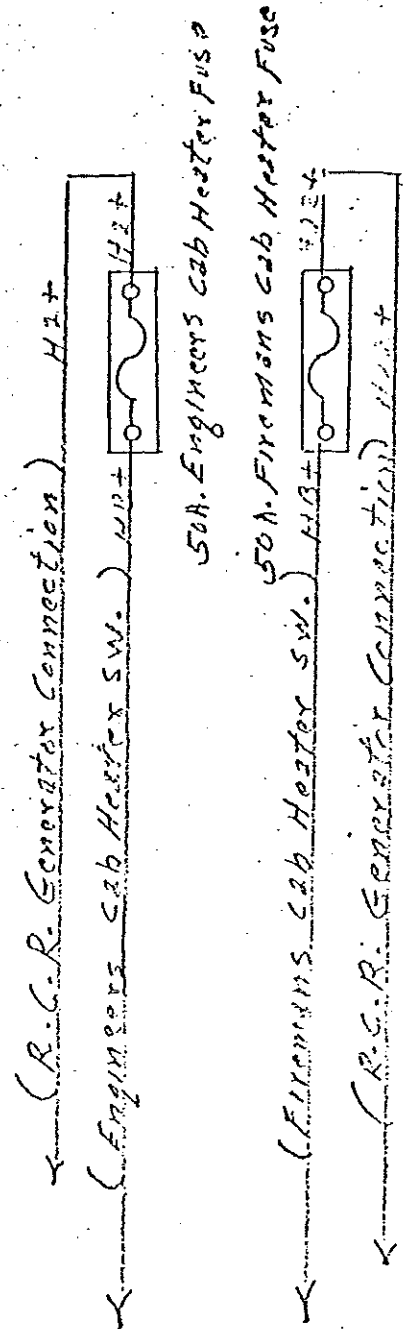 (R.C.R. Generator Connection) H2+
H2+
(Engineers Cab Heater SW.)
50A. Engineers Cab Heater Fuse
50A. Firemans Cab Heater Fuse
(Firemans Cab Heater SW.) HB+
(R.C.R. Generator Connection)